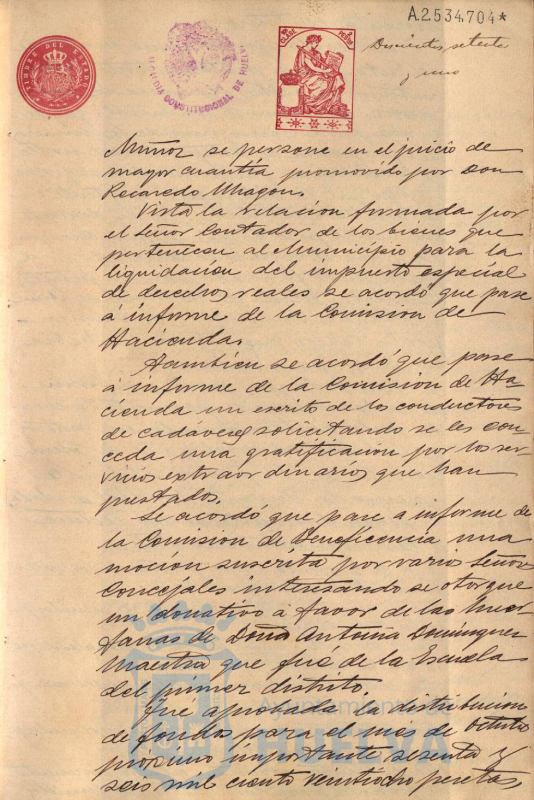 A.2.534.704*
TIMBRE DEL ESTADO
ALCALDIA CONSTITUCIONAL DE HUELVA
Doscientos setenta
y uno
Muñoz se persone en el juicio de
mayor cuantía promovido por Don
Recaredo Uhagon.
Vista la relacion formada por
el Señor Contador de los bienes que
pertenecen al Municipio para la
liquidacion del impuesto especial
de derechos reales se acordó que pase
á informe de la Comision de
Hacienda.
Tambien se acordó que pase
á informe de la Comision de Ha-
cienda un escrito de los conductores
de cadáveres solicitando se les con-
ceda una gratificacion por los ser-
vicios extraordinarios que han
prestados.
Se acordó que pase a informe de
la Comision de Beneficencia una
mocion suscrita por varios Señores
Concejales interesando se otorgue
un donativo á favor de las huer
fanas de Doña Antonia Dominguez
Maestra que fué de la Escuela
del primer distrito.
Fué aprobada la distribucion
de fondos para el mes de Octubre
próximo importante sesenta y
seis mil ciento veintiocho pesetas,
Ayuntamiento de
HUELVA